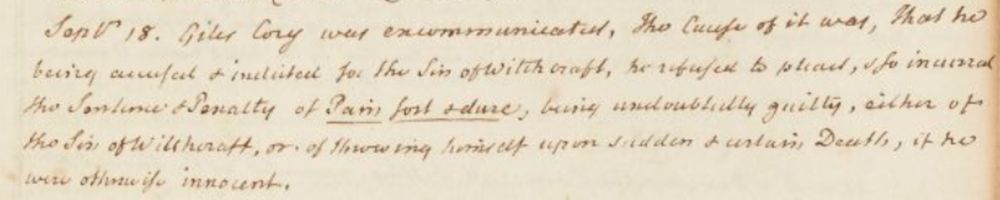 Sept. 18. Giles Cory was excommunicated, The Cause of it was, that he
being accused & indicted for the Sin of Witchcraft, he refused to plead, & so incurred
the Sentence & Penalty of Pain fort & dure, being undoubtedly guilty, either of
the Sin of Witchcraft, or of throwing himself upon sudden & certain Death, if he
were otherwise innocent.